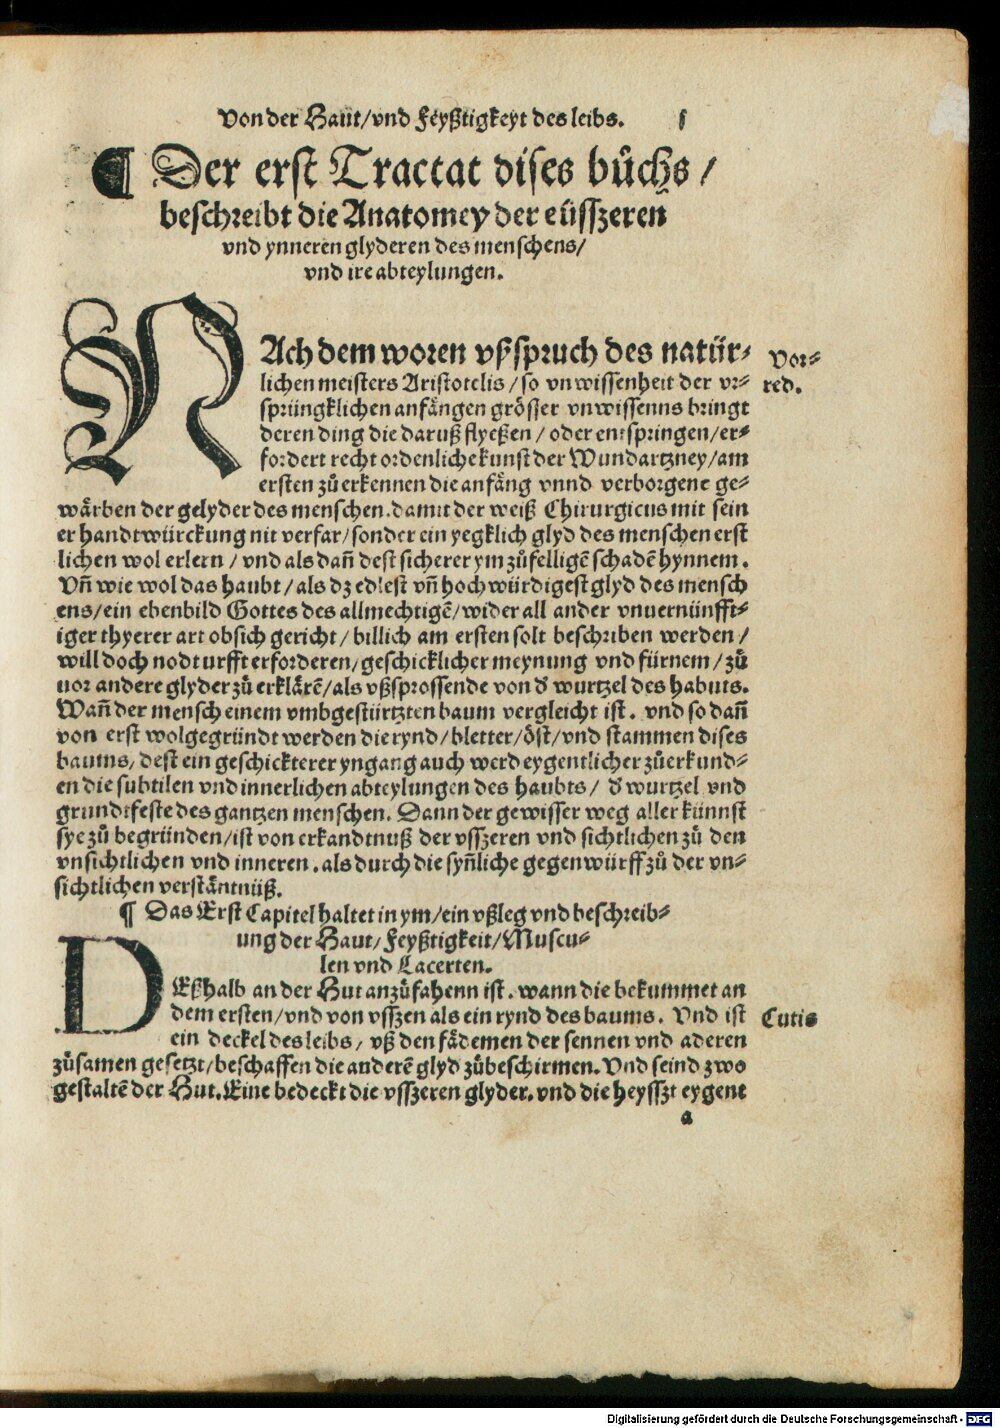 Von der Haut/vnd Feyßtigkeyt des leibs. j
¶ Der erst Tractat dises bůchs/
beschreibt die Anatomey der eüsszeren
vnd ynneren glyderen des menschens/
vnd ire abteylungen.
NAch dem woren vßspruch des natür⸗
Vor⸗
lichen meisters Aristotelis/so vnwissenheit der vr⸗
red.
sprüngklichen anfängen grösser vnwissenns bringt
deren ding die daruß flyeßen/oder entspringen/er⸗
fordert recht ordenliche kunst der Wundartzney/am
ersten zů erkennen die anfäng vnnd verborgene ge⸗
wärben der gelyder des menschen.damit der weiß Chirurgicus mit sein
er handtwürckung nit verfar/sonder ein yegklich glyd des menschen erst
lichen wol erlern/vnd als dañ dest sicherer ym zůfelligē schadē hynnem.
Vñ wie wol das haubt/als dz edlest vñ hochwürdigest glyd des mensch
ens/ein ebenbild Gottes des allmechtigē/wider all ander vnuernünfft⸗
iger thyerer art obsich gericht/billich am ersten solt beschriben werden/
will doch nodturfft erforderen/geschicklicher meynung vnd fürnem/zů
uor andere glyder zů erklärē/als vßsprossende von d̓ wurtzel des habuts.
Wañ der mensch einem vmbgestürtzten baum vergleicht ist. vnd so dañ
von erst wolgegründt werden die rynd/bletter/öst/vnd stammen dises
baums/dest ein geschickterer yngang auch werd eygentlicher zůerkund⸗
en die subtilen vnd innerlichen abteylungen des haubts/d̓ wurtzel vnd
grundtfeste des gantzen menschen. Dann der gewisser weg aller künnst
sye zů begründen/ist von erkandtnuß der vsszeren vnd sichtlichen zů den
vnsichtlichen vnd inneren.als durch die syñliche gegenwürff zů der vn⸗
sichtlichen verstäntnüß.
¶ Das Erst Capitel haltet in ym/ein vßleg vnd beschreib⸗
ung der Haut/Feyßtigkeit/Muscu⸗
len vnd Lacerten.
DEßhalb an der Hut anzůfahenn ist.wann die bekummet an
dem ersten/vnd von vsszen als ein rynd des baums. Vnd ist
Cutis
ein deckel des leibs/vß den fädemen der sennen vnd aderen
zůsamen gesetzt/beschaffen die anderē glyd zůbeschirmen.Vnd seind zwo
gestaltē der Hut.Eine bedeckt die vsszeren glyder.vnd die heysszt eygent
a
Digitalisierung gefördert durch die Deutsche Forschungsgemeinschaft - DFG